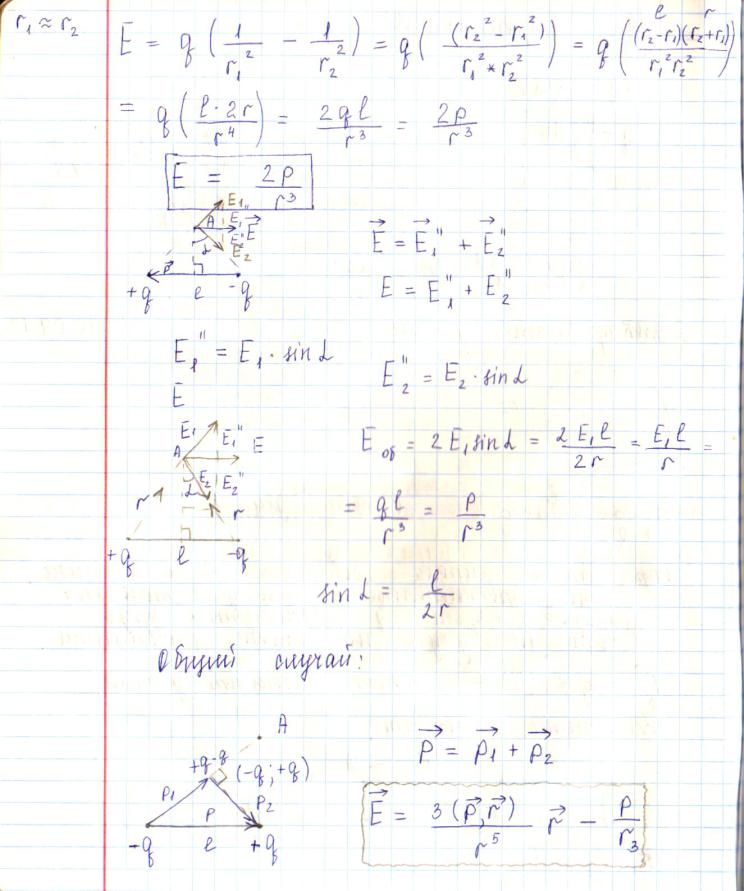 r₁ ≈ r₂
E = q ( 1/r₁² − 1/r₂² ) = q ( (r₂² − r₁²)/(r₁² * r₂²) ) = q ( (r₂−r₁)(r₂+r₁)/(r₁² r₂²) )
l r
= q ( l · 2r / r⁴ ) = 2ql/r³ = 2p/r³
E = 2p/r³
E₁ E₁'' A E⃗ E₂'' E₂
α p⃗
+q l -q
E⃗ = E⃗₁'' + E⃗₂''
E = E₁'' + E₂''
E₁'' = E₁ · sin α
E₂'' = E₂ · sin α
E
E₁ E₁'' A E
E₂ E₂'' α r r
+q l -q
E об = 2 E₁ sin α = 2 E₁ l / 2r = E₁ l / r =
= ql/r³ = p/r³
sin α = l/2r
Общий случай:
A
+q -q (-q; +q)
p₁ p p₂
-q l +q
p⃗ = p⃗₁ + p⃗₂
E⃗ = 3 (p⃗, r⃗)/r⁵ r⃗ − p/r₃